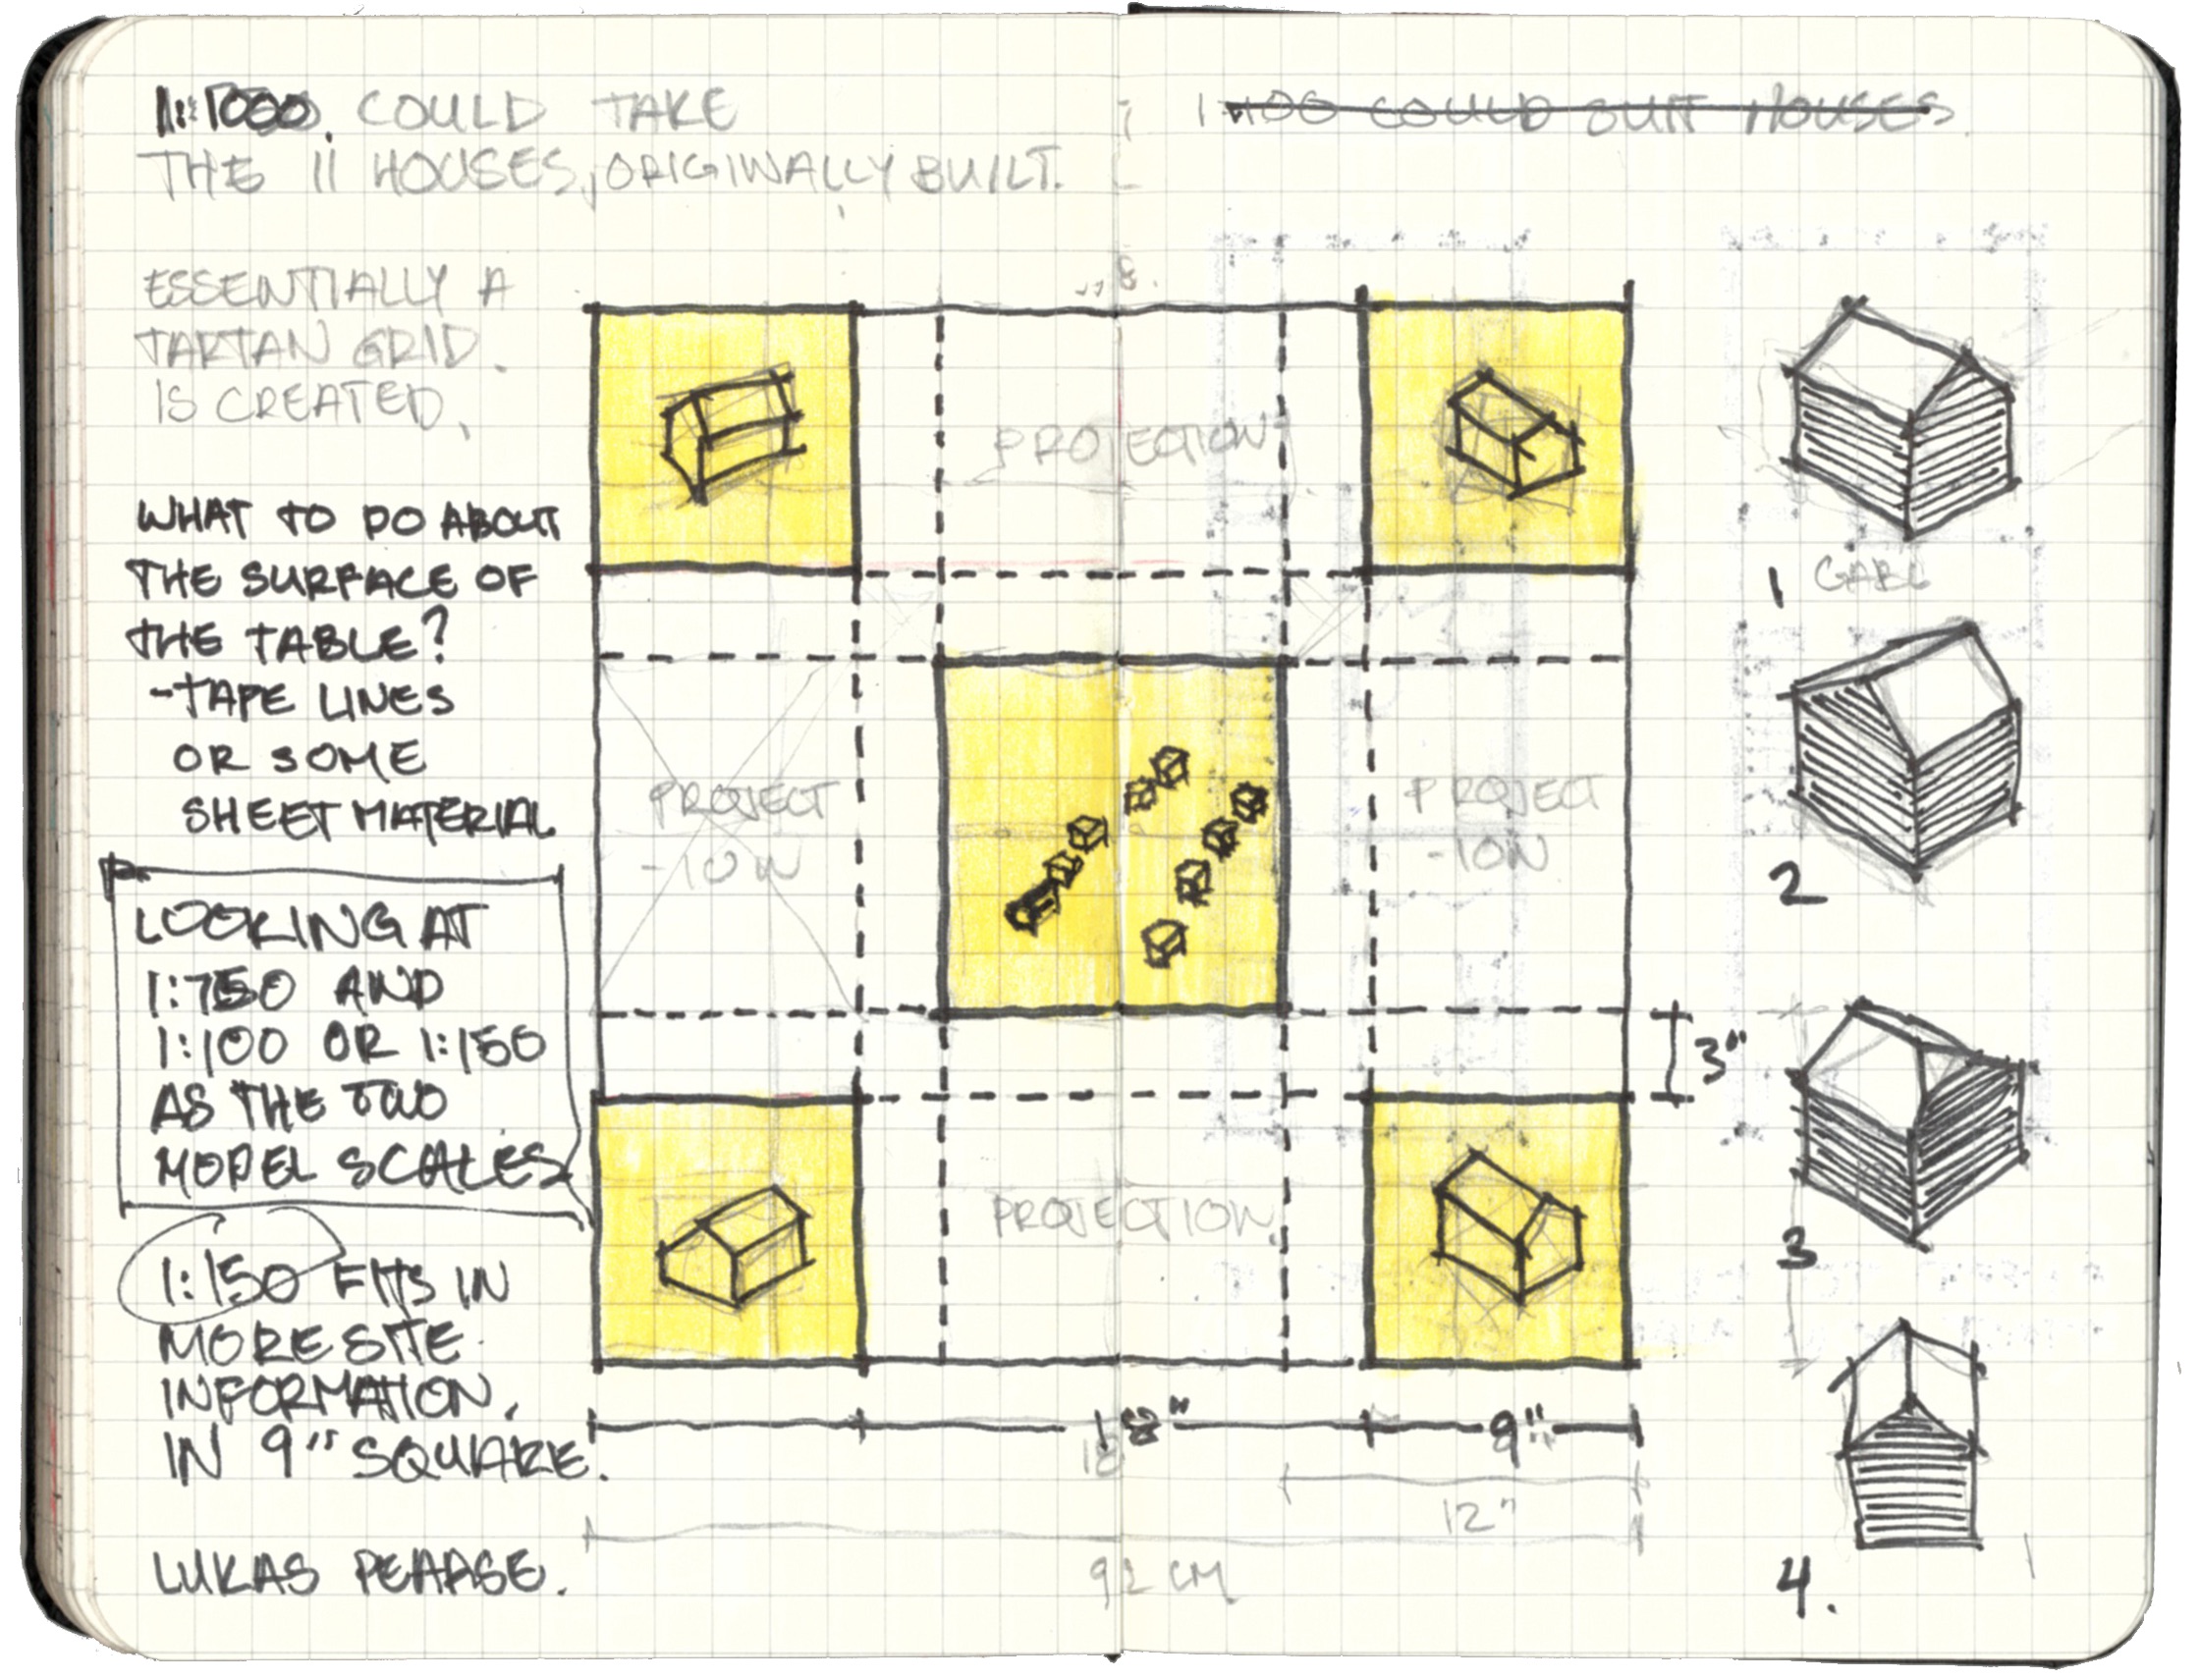 1:1000. COULD TAKE
THE 11 HOUSES, ORIGINALLY BUILT.
1:100 COULD SUIT HOUSES
ESSENTIALLY A
TARTAN GRID.
IS CREATED.
WHAT TO DO ABOUT
THE SURFACE OF
THE TABLE?
-TAPE LINES
OR SOME
SHEET MATERIAL
LOOKING AT
1:750 AND
1:100 OR 1:150
AS THE TWO
MODEL SCALES
1:150 FITS IN
MORE SITE
INFORMATION.
IN 9" SQUARE.
LUKAS PEARSE.
PROJECTION
PROJECT
-ION
PROJECT
-ION
PROJECTION
3"
18"
18
9"
12"
92 CM
1 GABL
2
3
4.